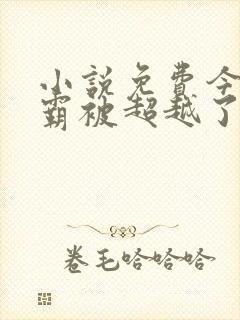 小説免費今
霸被超越了
卷毛哈哈哈